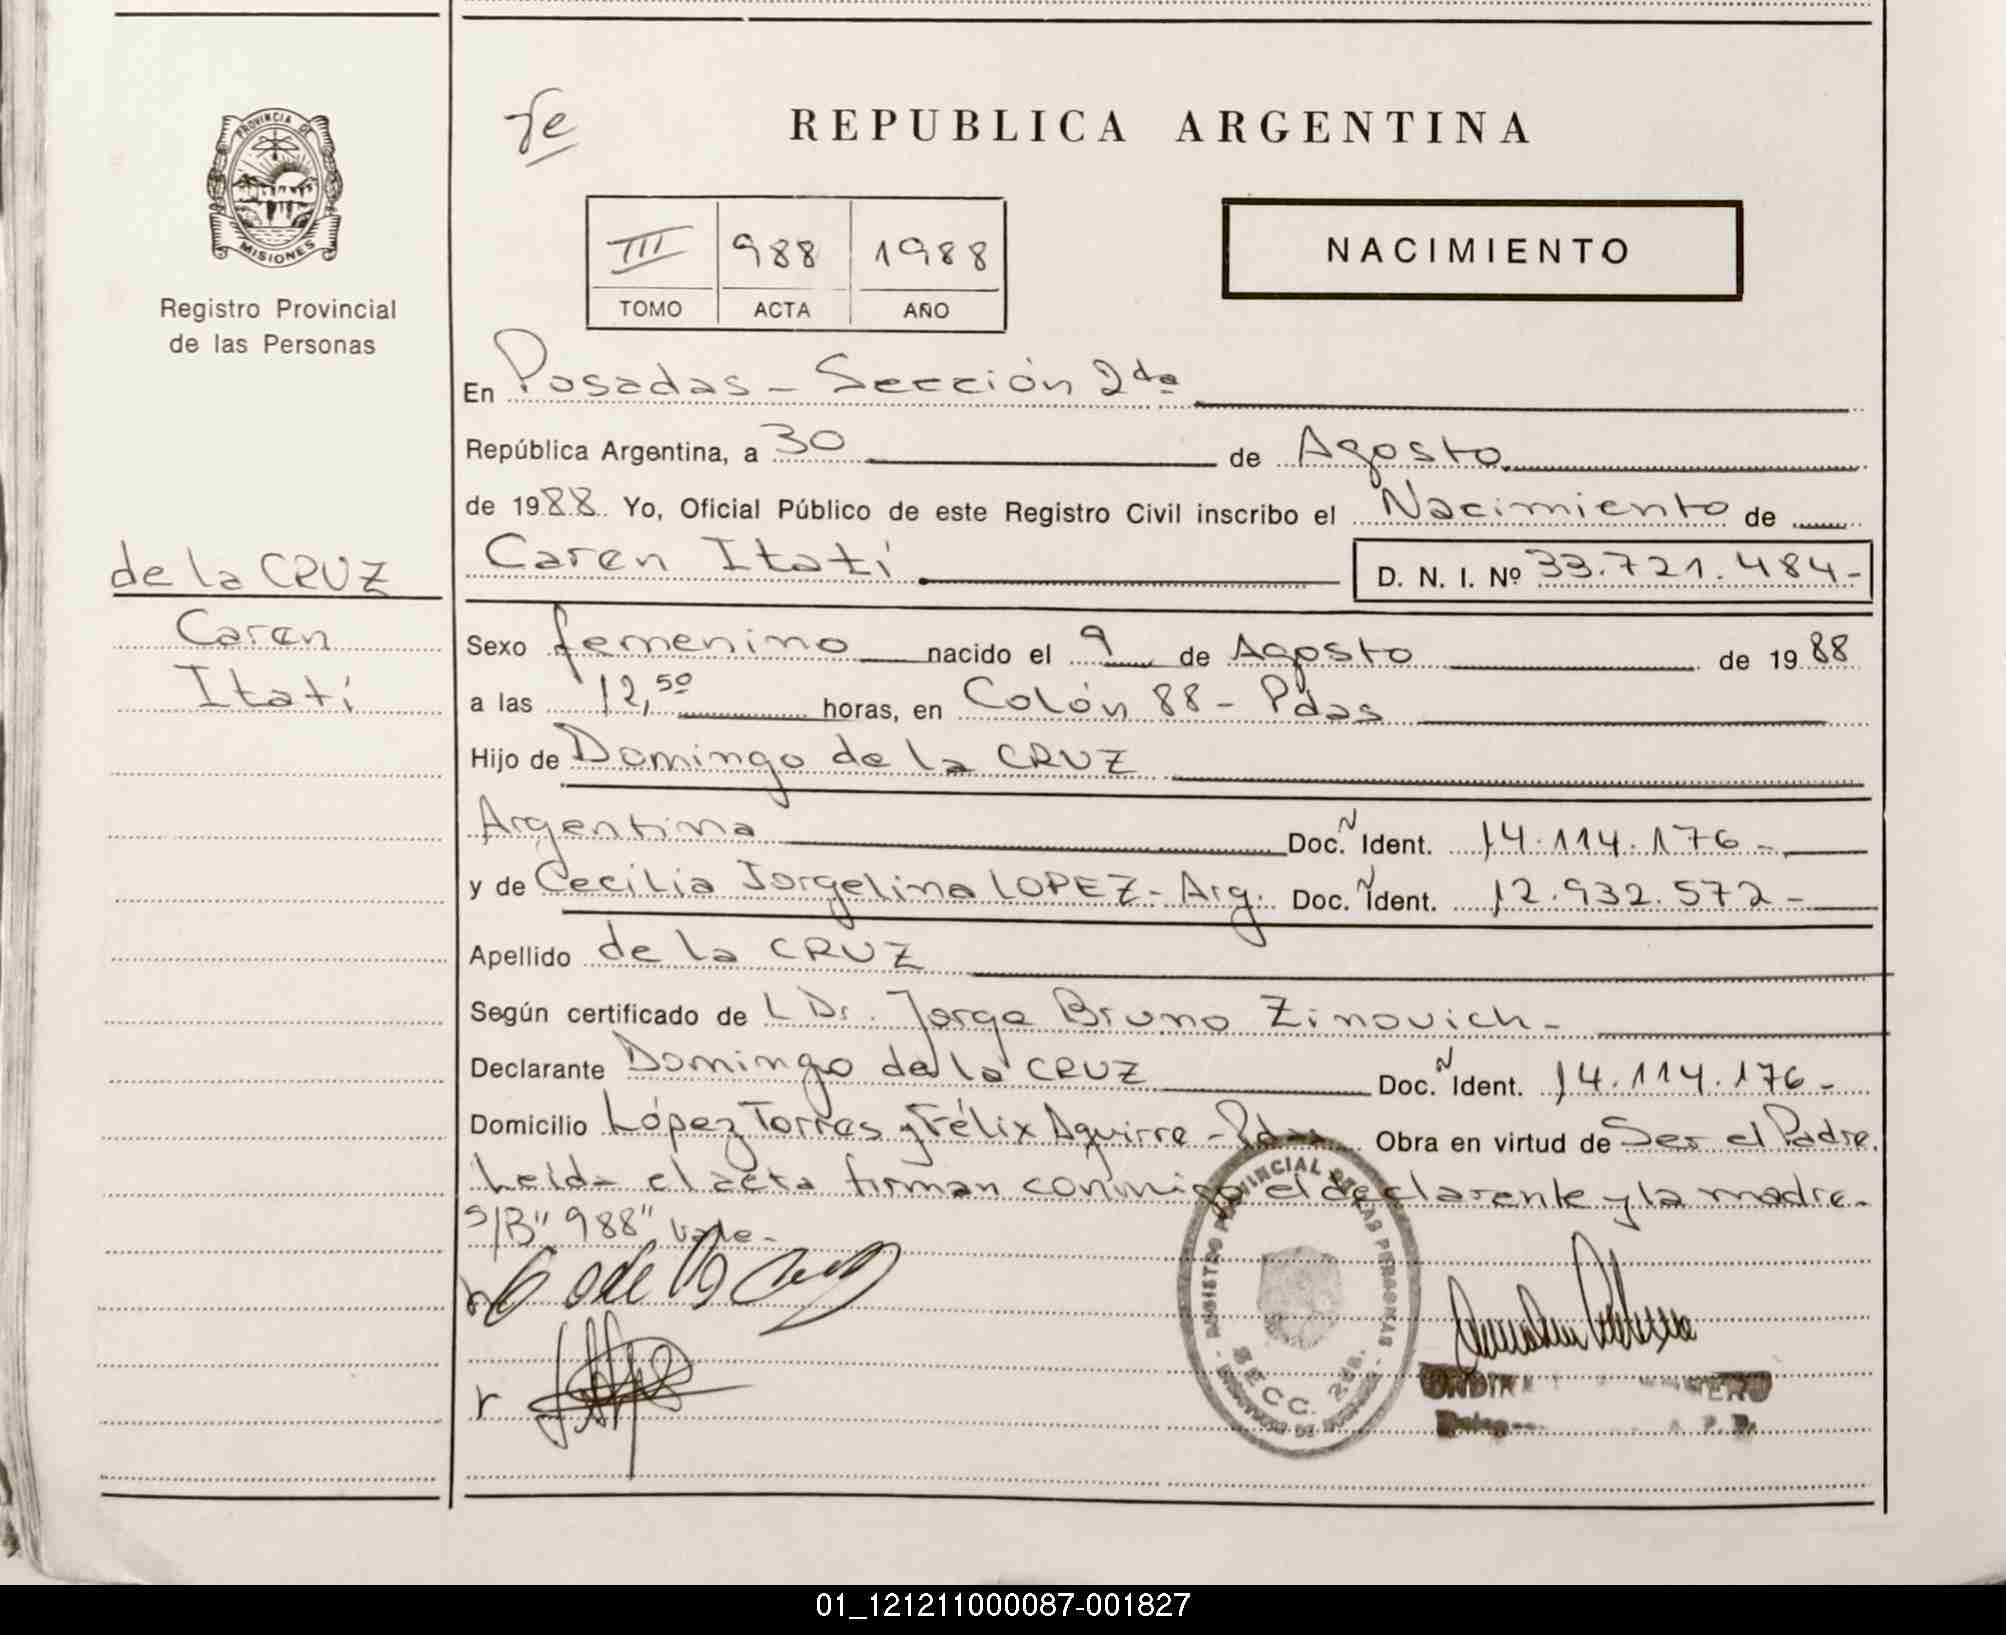 PROVINCIA DE
MISIONES
Registro Provincial
de las Personas
de la CRUZ
Caren
Itatí
REPUBLICA ARGENTINA
III 988 1988
TOMO ACTA AÑO
NACIMIENTO
En Posadas - Sección 2da
República Argentina, a 30 de Agosto
de 1988 Yo, Oficial Público de este Registro Civil inscribo el Nacimiento de
Caren Itatí D. N. I. Nº 33.721.484-
Sexo femenino nacido el 9 de Agosto de 1988
a las 12,50 horas, en Colón 88 - Pdas
Hijo de Domingo de la CRUZ
Argentina Doc. Ident. 14.114.176-
y de Cecilia Jorgelina LOPEZ - Arg. Doc. Ident. 12.932.572-
Apellido de la CRUZ
Según certificado de L Dr. Jorge Bruno Zinovich-
Declarante Domingo de la CRUZ Doc. Ident. 14.114.176-
Domicilio López Torres y Félix Aguirre - Pdas Obra en virtud de Ser el Padre.
Leída el acta firman conmigo el declarante y la madre.
S/B "988" Vale-
REGISTRO PROVINCIAL DE LAS PERSONAS
SECC. 2da.
01_121211000087-001827